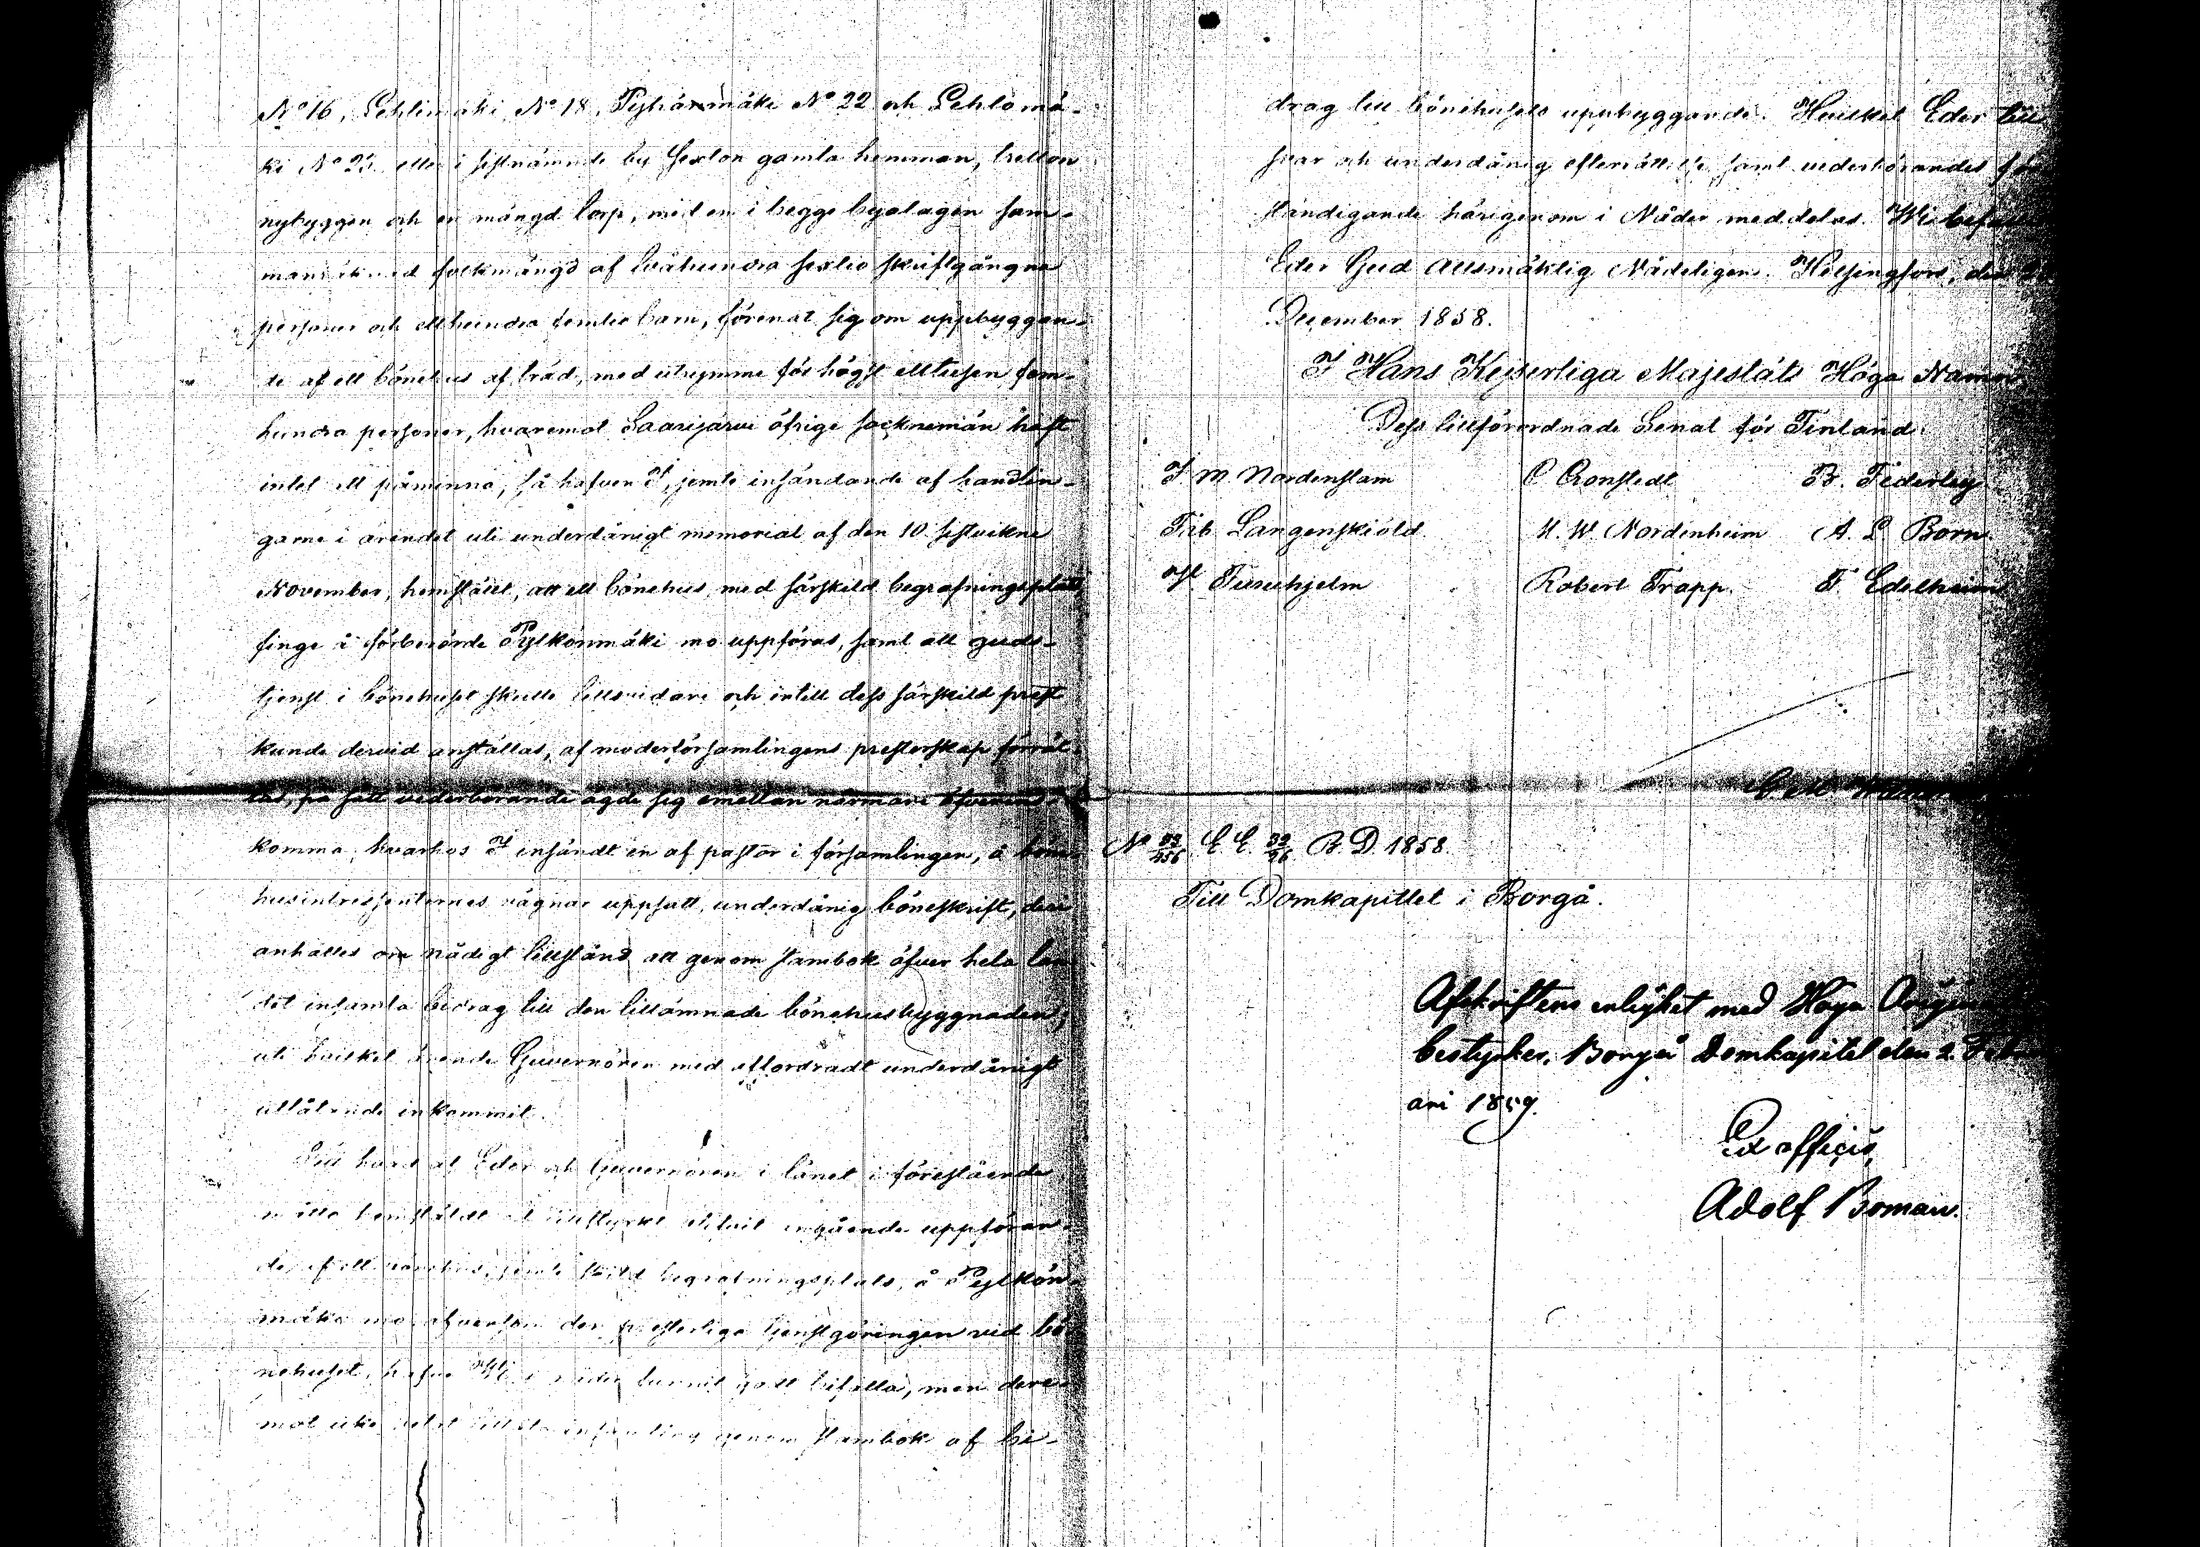 No 16, Lehtimäki No 18, Pyhänmäki No 22 och Lehtomä-
ki No 23 eller i sistnämnde by sexton gamla hemman, tretton
nybyggen och en mängd torp, med en i begge byalagen sam-
manräknad folkmängd af tvåhundra sextio skriftgångna
personer och etthundra femtio barn, förenat sig om uppbyggan-
de af ett bönehus af träd, med utrymme för högst ettusen fem-
hundra personer, hvaremot Saarijärvi öfrige sockenemän haft
intet att påminna, så hafven I, jemte insändande af handlin-
garne i ärendet uti underdånigt memorial af den 10 sistvikne
November, hemstält, att ett bönehus med särskild begrafningsplats
finge å förberörde Pylkönmäki mo uppföras, samt att guds-
tjenst i bönehuset skulle tillsvidare och intill dess särskild prest
kunde dervid anställas, af moderförsamlingens presterskap förrät-
tas, på sätt vederbörande ägde sig emellan närmare öfverens-
komma, hvarhos I insändt en af pastor i församlingen, å böne-
husintressenternes vägnar uppsatt, underdånig böneskrift, deri
anhålles om nådigt tillstånd att genom stambok öfver hela lan-
det insamla bidrag till den tillämnade bönehusbyggnaden;
uti hvilket ärende Guvernören med affordradt underdånigt
utlåtande inkommit.
Till hvad af Eder och Guvernören i länet i förestående
måtto hemstäldt och tillstyrkt blifvit angående uppföran-
de af ett bönehus, jemte skild begrafningsplats, å Pylkön-
mäki mo äfvensom den presterliga tjenstgöringen vid bö-
nehuset, hafve Wi i nåder funnit godt bifalla, men dere-
mot icke velat tillåta insamling genom stambok af bi-
drag till bönehusets uppbyggande. Hvilket Eder till
svar och underdånig efterrättelse samt vederbörandes för-
ständigande härigenom i Nåder meddelas. Wi befalle
Eder Gud Allsmäktig Nådeligen. Helsingfors, den
December 1858.
I Hans Kejserliga Majestäts Höga Namn
Dess tillförordnade Senat för Finland:
J M Nordenstam C Cronstedt B. Federley
Fab Langenskiöld. H. W. Nordenheim A. L. Born.
Hj. Furuhjelm Robert Trapp. F. Edelheim
No 83/456 E E 32/96 B. D. 1858.
Till Domkapitlet i Borgå.
Afskriftens enlighet med Höga
bestyrker. Borgå Domkapitel den 2. Febru-
ari 1859.
Ex officio,
Adolf Boman.